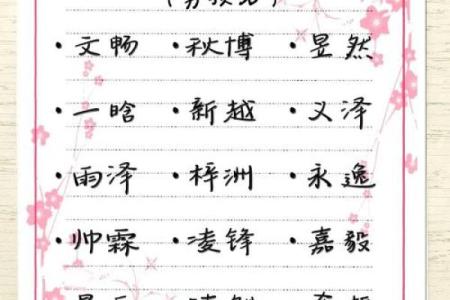 ·文畅 ·秋博 ·昱然
·一晗 ·新越 ·义泽
·雨泽 ·梓洲 ·永逸
·帅霖 ·凌锋 ·嘉毅